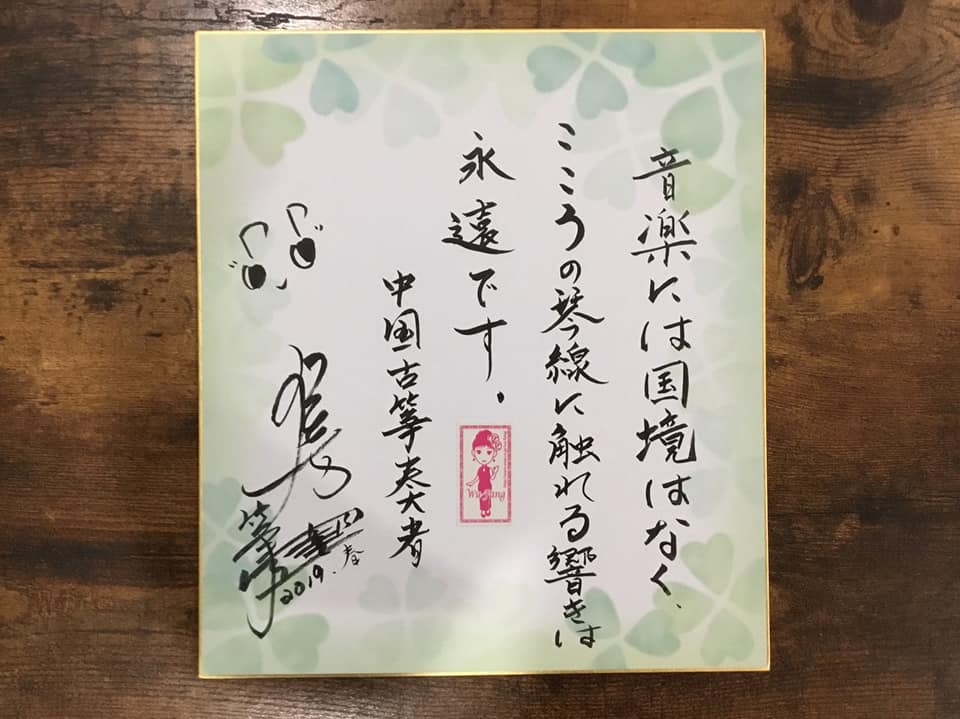 音楽には国境はなく、
こころの琴線に触れる響きは
永遠です。
中国古箏奏者
2019.春